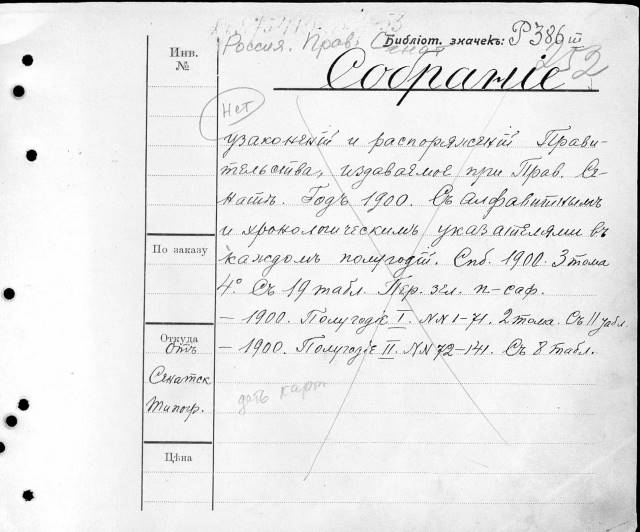 Россия. Прав. Сенат
Библіот. значекъ: P 386 III
252
Инв.
№
Собраніе
Нет
узаконеній и распоряженій Прави-
тельства, издаваемое при Прав. Се-
натѣ. Годъ 1900. Съ алфавитнымъ
и хронологическимъ указателями въ
каждомъ полугодіи. Спб. 1900. 3 тома
4°. Съ 19 табл. Пер. згл. п-саф.
По заказу
— 1900. Полугодіе I. NN 1-71. 2 тома. Съ 11 табл.
— 1900. Полугодіе II. NN 72-141. Съ 8 табл.
Откуда
Отъ
Сенатск
Типогр.
дать карт
Цѣна